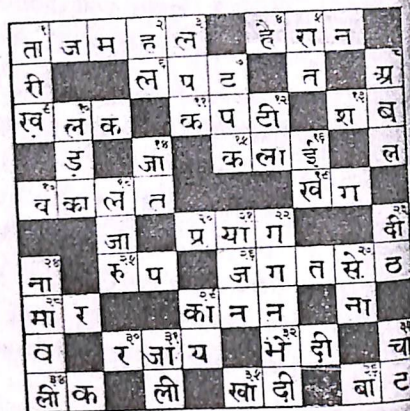 ता ज म ह ल है रा न
री ल प ट त प्र
ख़ ल क क प टी श ब
ड़ जा क ला ई ल
व का ल त ख ग
जा प्र या ग दी
ना रु प ज ग त से ठ
मा र का न न ना
व र जा य मे दी चो
ली क ली खा दी बा ट